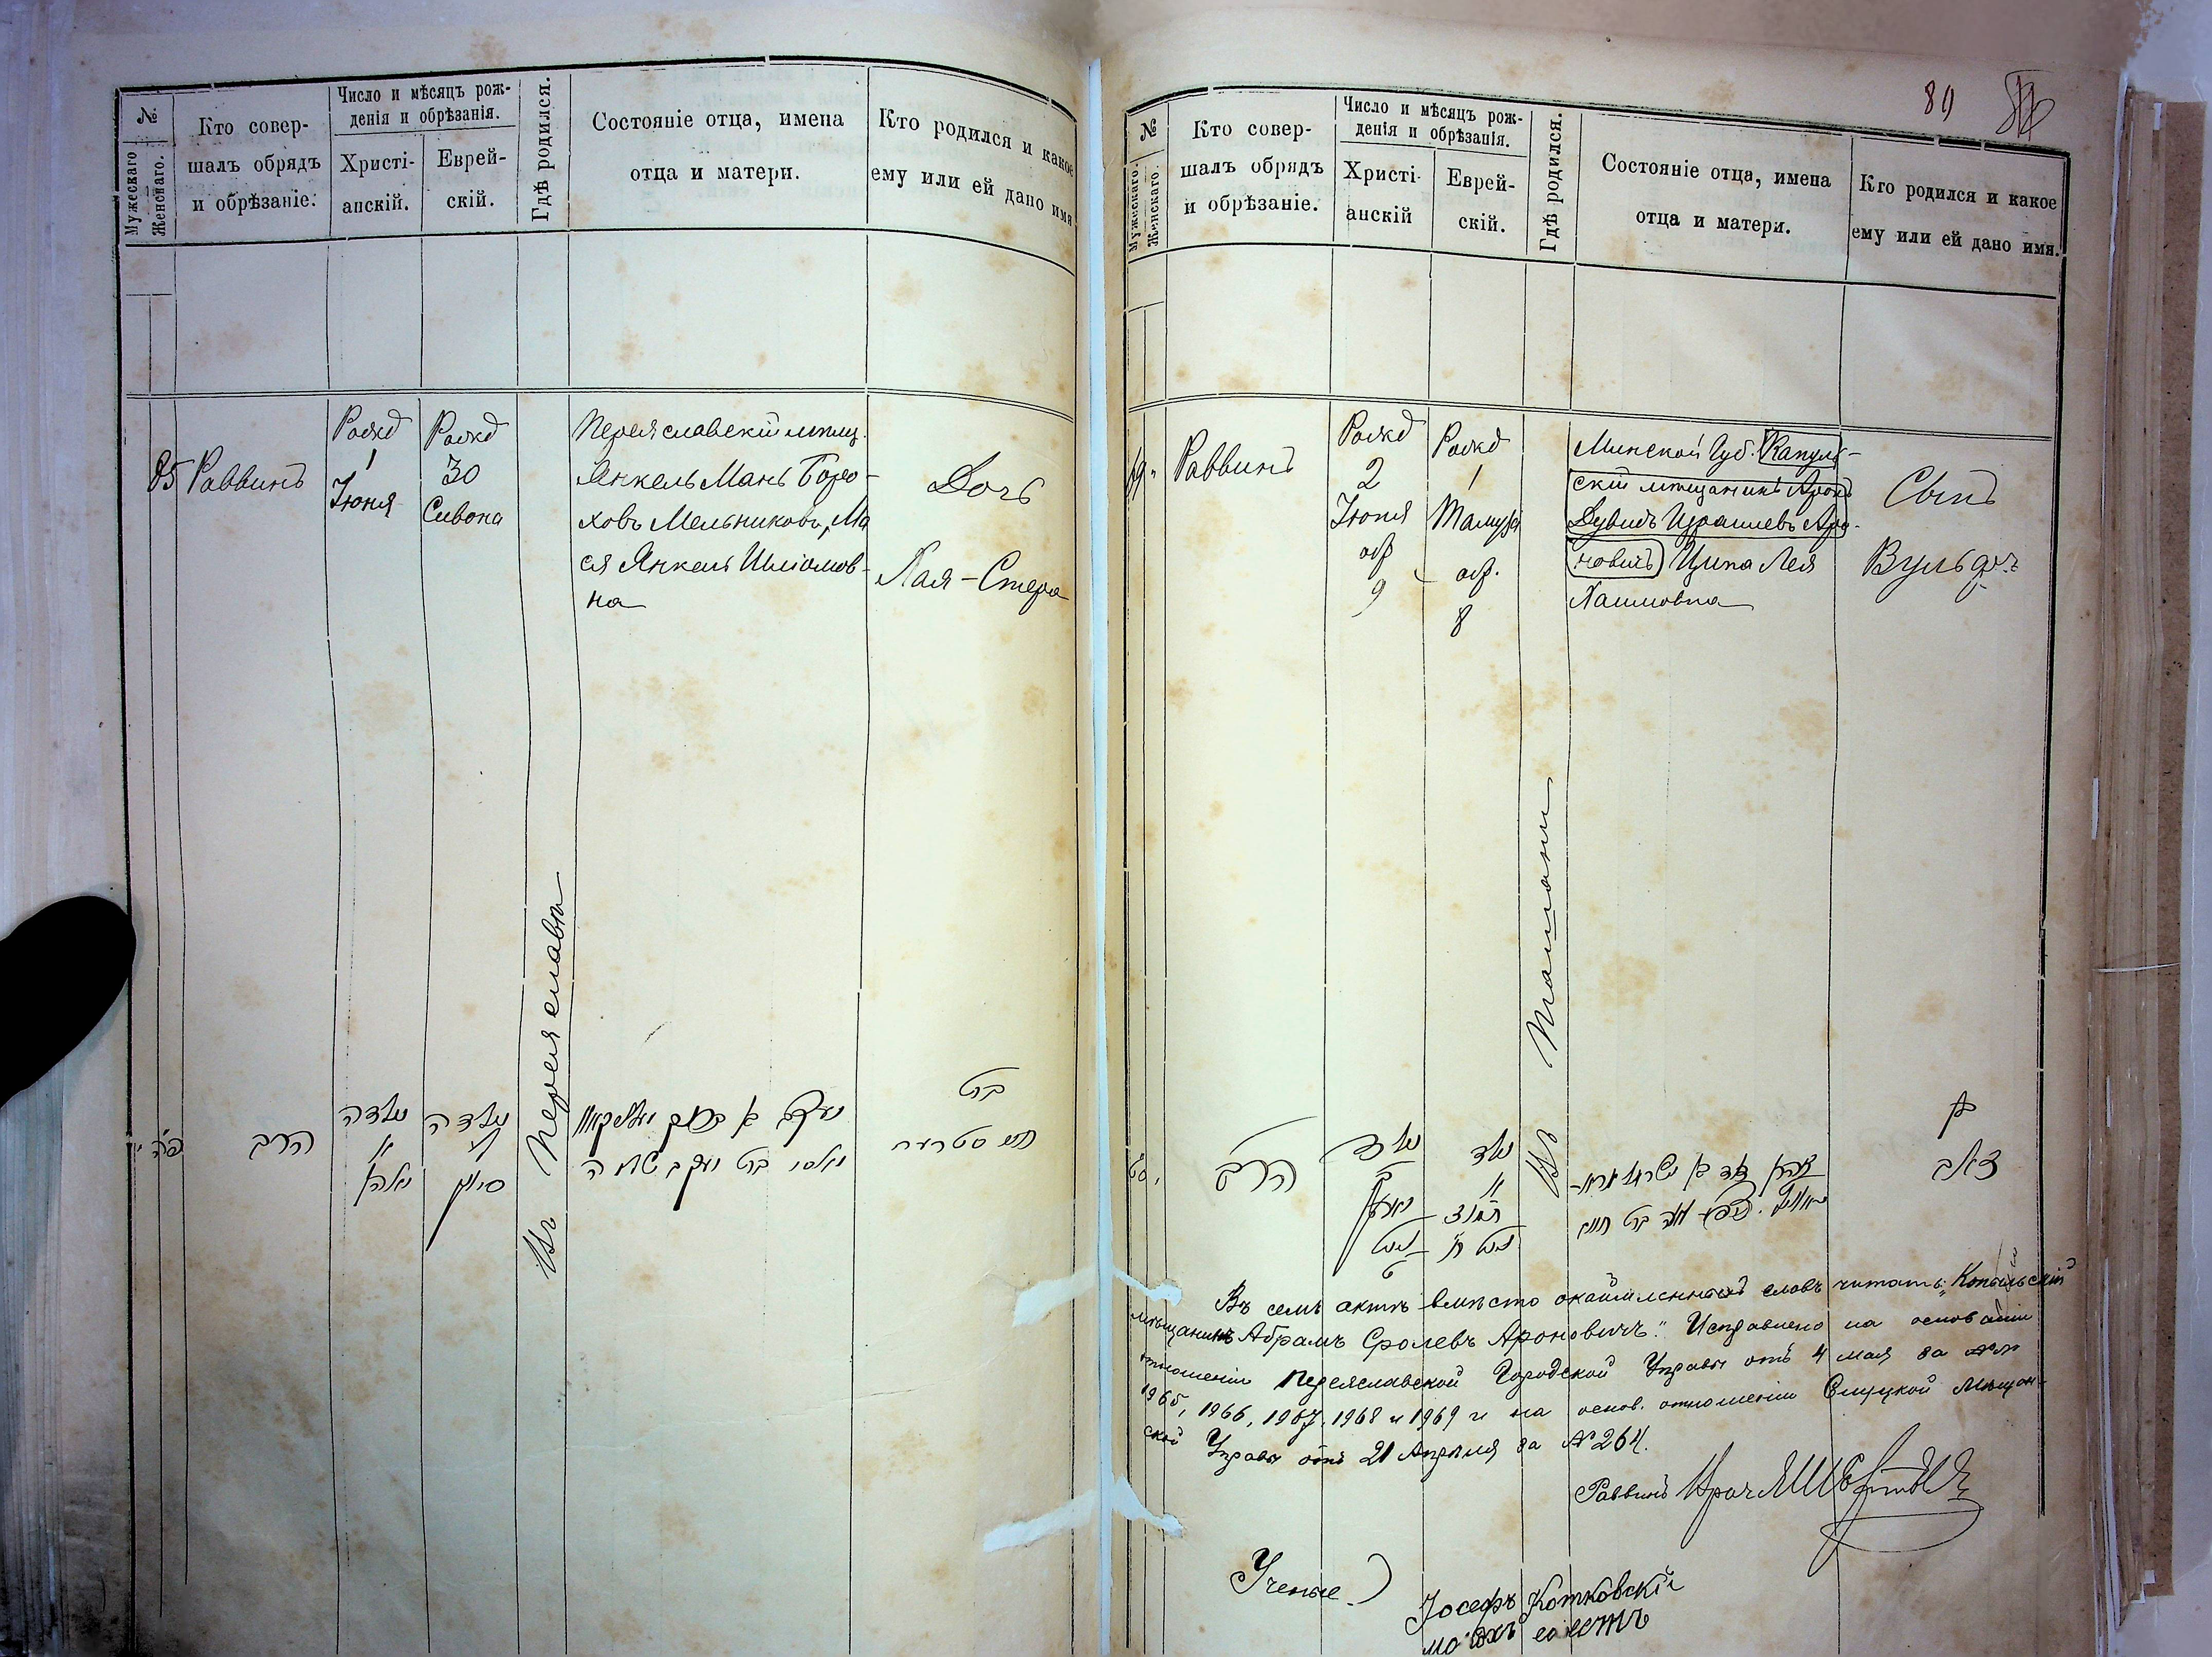 №
Мужескаго
Женскаго.
Кто совер-
шалъ обрядъ
и обрѣзаніе.
Число и мѣсяцъ рож-
денія и обрѣзанія.
Христі-
анскій.
Еврей-
скій.
Гдѣ родился.
Состояніе отца, имена
отца и матери.
Кто родился и какое
ему или ей дано имя
85 Раввинъ
Рожд
1
Іюня
Рожд
30
Сивона
Въ Переяславѣ
Переяславскій мѣщ.
Янкель Мань Боро-
ховъ Мельниковъ, Ма
ся Янкель Шліомов-
на
Дочь
Хая-Стера
פ״ה
הרב
נולדה
א
יוני
נולדה
ל
סיון
בת
חיה סטערע
89
№
Мужескаго.
Женскаго.
Кто совер-
шалъ обрядъ
и обрѣзаніе.
Число и мѣсяцъ рож-
денія и обрѣзанія.
Христі-
анскій
Еврей-
скій.
Гдѣ родился.
Состояніе отца, имена
отца и матери.
Кто родился и какое
ему или ей дано имя.
Раввинъ
Рожд
2
Іюня
обр
9
Рожд
1
Тамуза
обр.
8
Въ Ташани
Минской Губ. Капуль-
скій мѣщанинъ Аронъ
Дувидъ Израилевъ Аро-
новичъ Ципа Лея
Хаимовна
Сынъ
Вульфъ
הרב
נולד
ב
נולד
א
תמוז
בן
זאב
Въ семъ актѣ вмѣсто окаймленныхъ словъ читать: „Копыльскій
мѣщанинъ Абрамъ Сролевъ Ароновичъ." Исправлено на основаніи
отношенія Переяславской Городской Управы отъ 4 мая за
1965, 1966, 1967, 1968 и 1969 и на основ. отношенія Слуцкой Мѣщан-
ской Управы отъ 21 Апрѣля за № 264.
Раввинъ Врач
Ученые
Іосефъ Котковскій